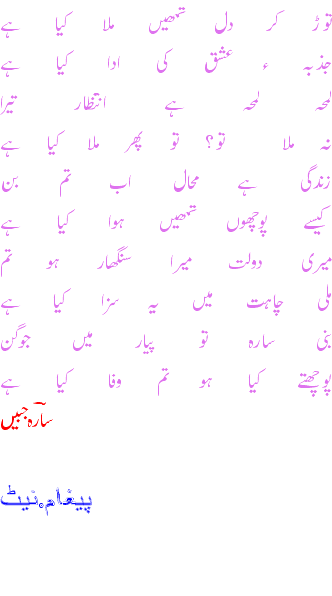 توڑ کر دل تمھیں ملا کیا ہے
جذبہ ء عشق کی ادا کیا ہے
لمحہ لمحہ ہے انتظار تیرا
نہ ملا تو؟ تو پھر ملا کیا ہے
زندگی ہے محال اب تم بن
کیسے پوچھوں تمھیں ہوا کیا ہے
میری دولت میرا سنگھار ہو تم
ملی چاہت میں یہ سزا کیا ہے
بنی سارہ تو پیار میں جوگن
پوچھتے کیا ہو تم وفا کیا ہے
سارہ جبیں
پیغام۔نیٹ